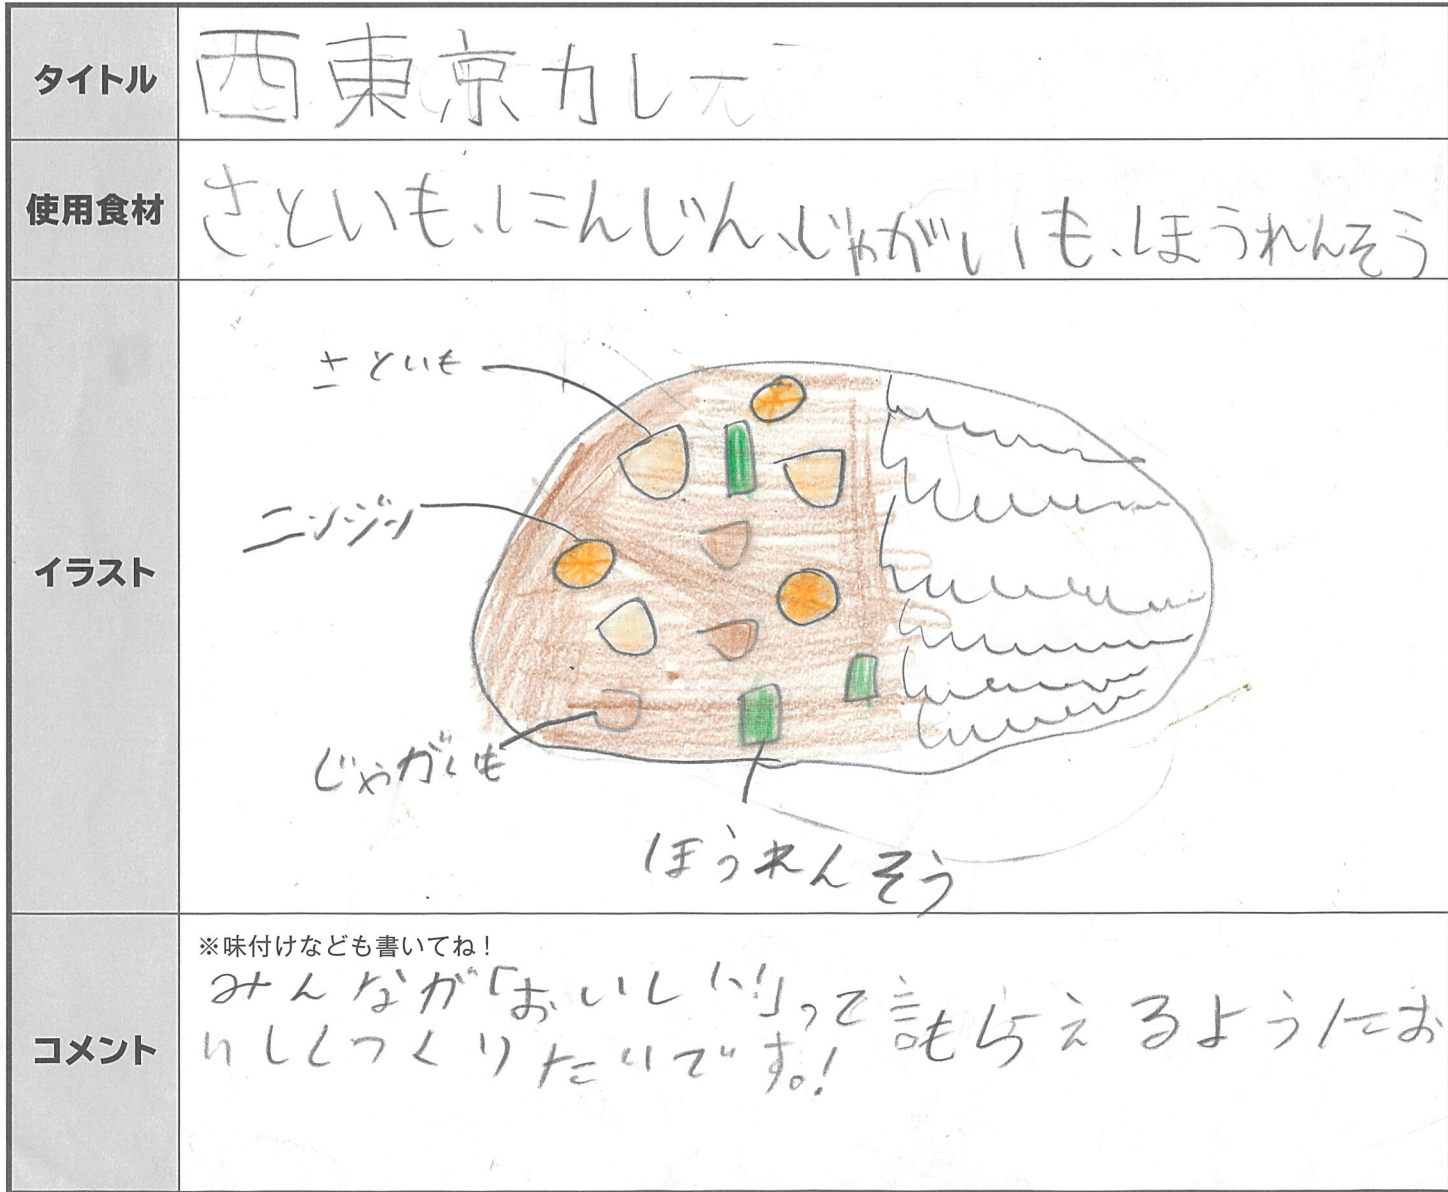 タイトル
西東京カレー
使用食材
さといも、にんじん、じゃがいも、ほうれんそう
イラスト
さといも
ニンジン
じゃがいも
ほうれんそう
コメント
※味付けなども書いてね!
みんなが「おいしい!」って言もらえるようにお
いしくつくりたいです。!